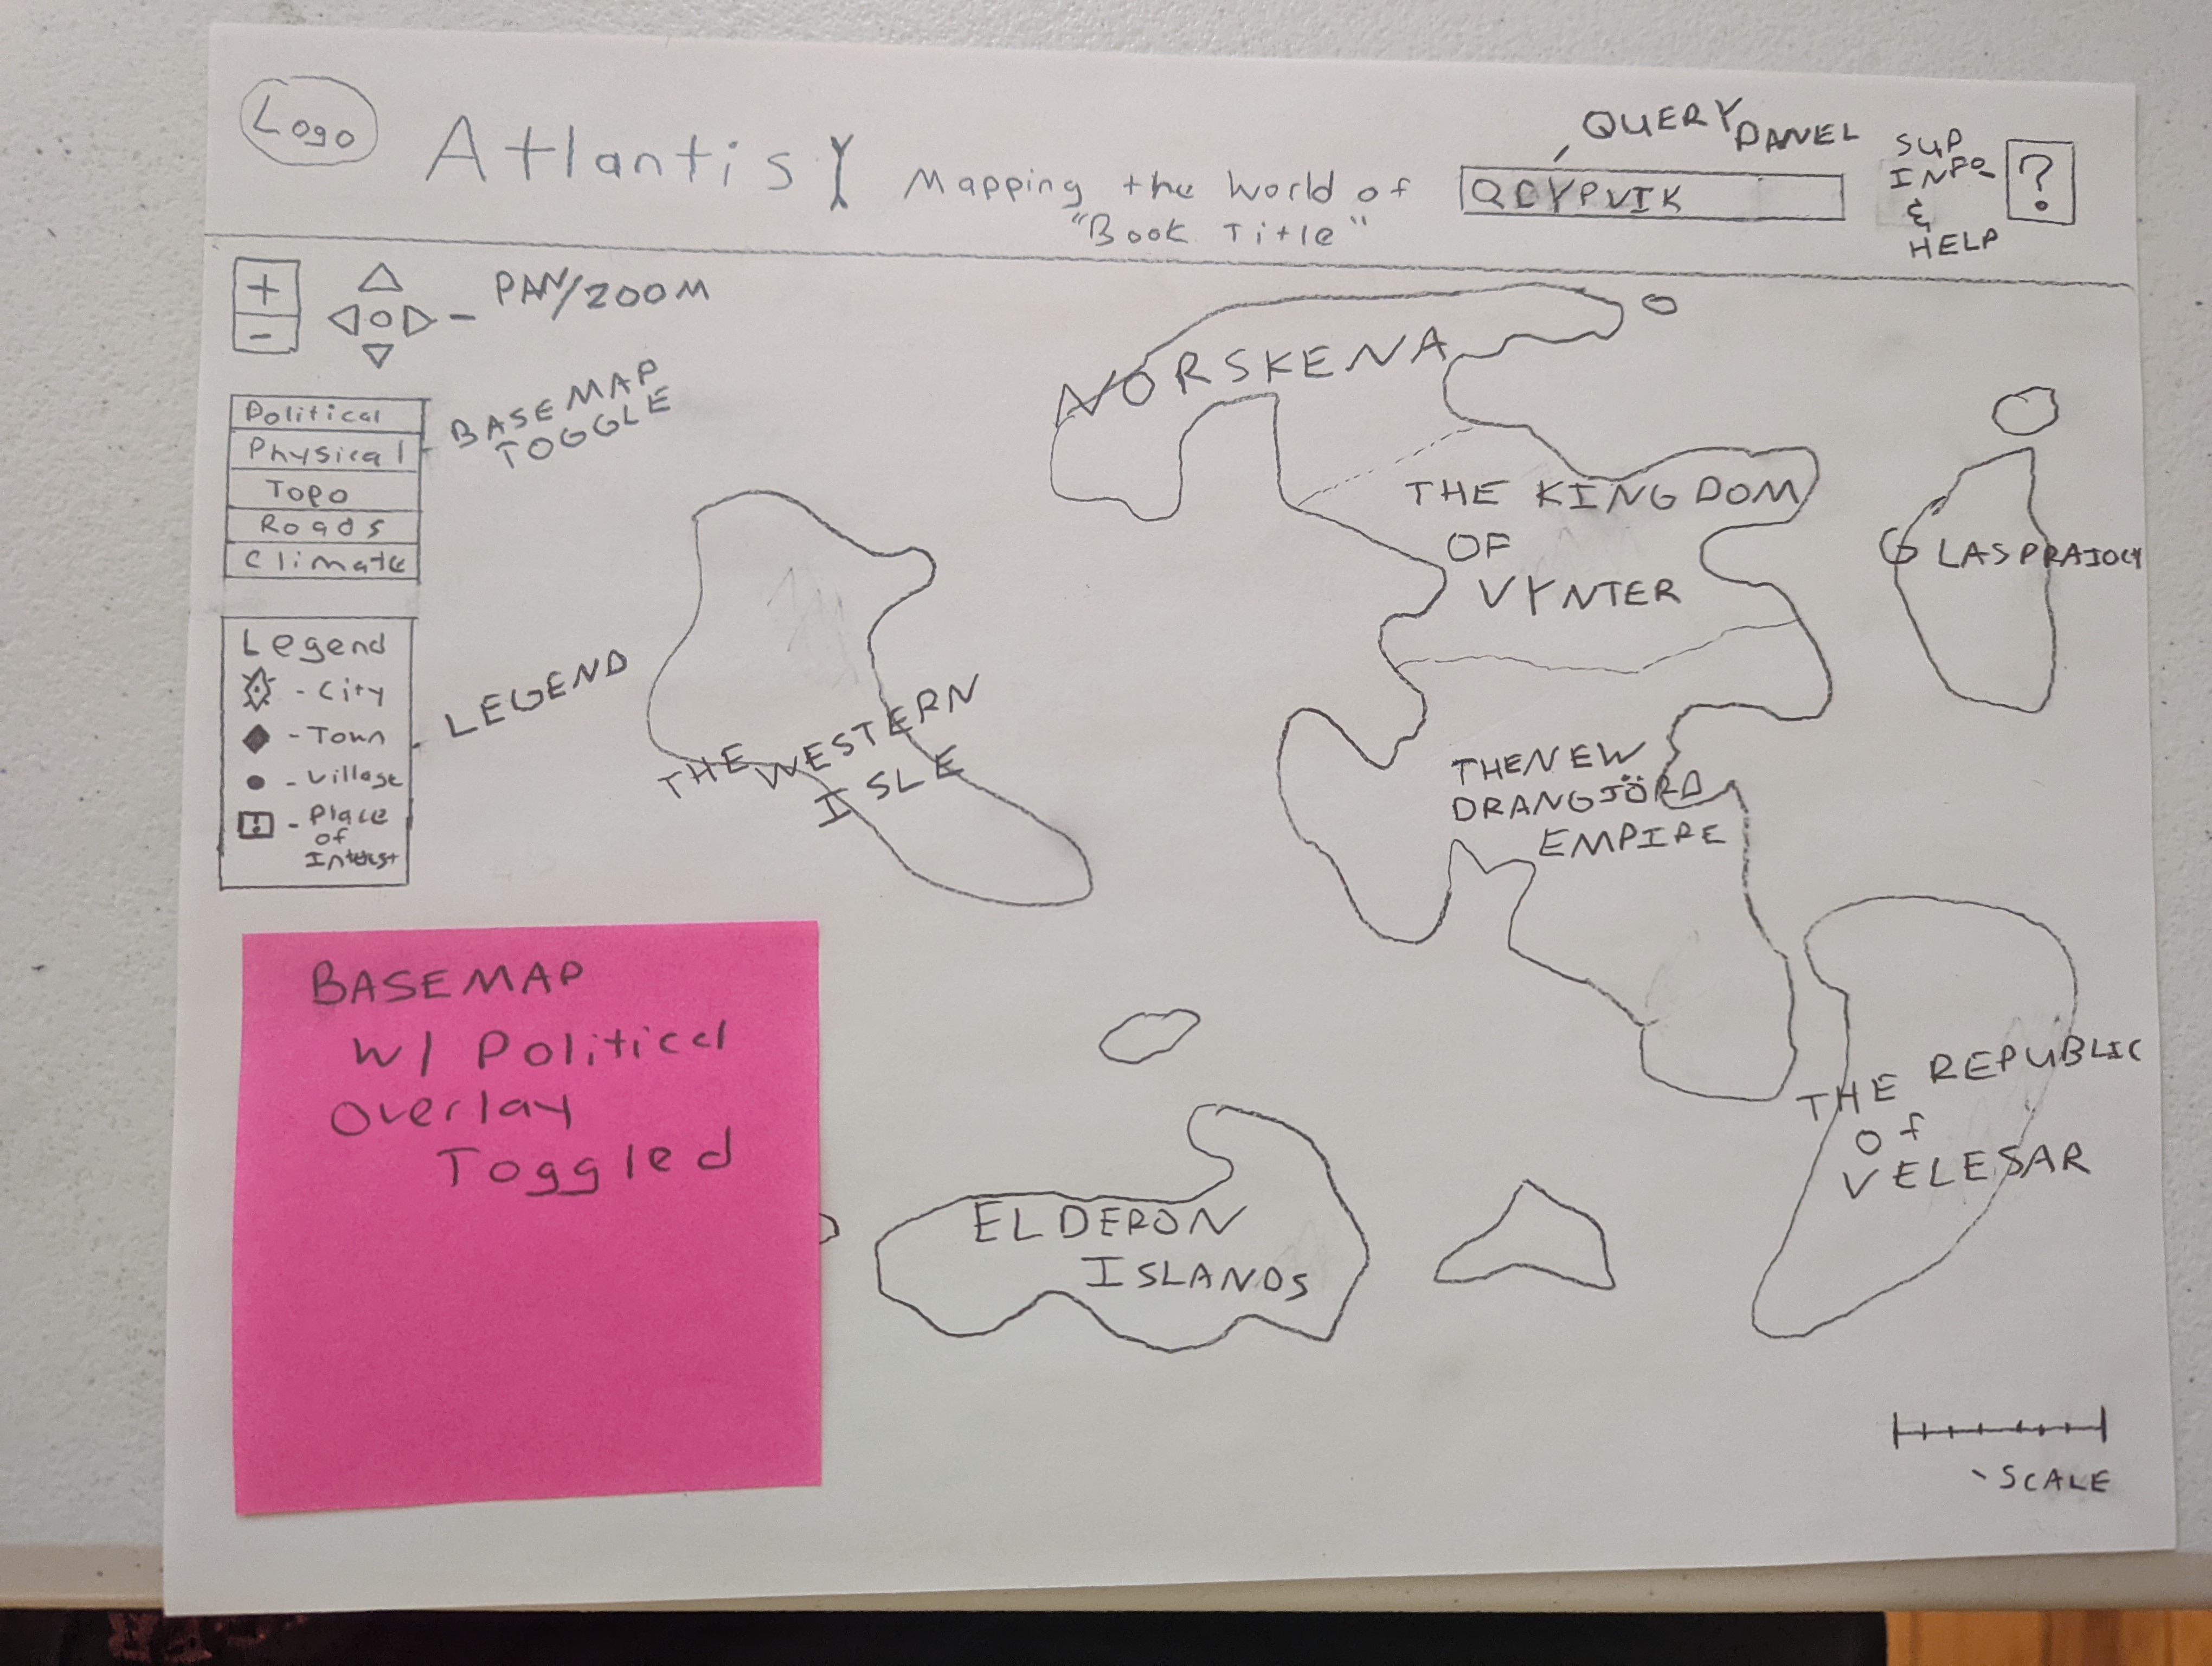 Logo
Atlantis
Mapping the World of
"Book Title"
QUERY PANEL
SUP
INFO
&
HELP
?
+
-
PAN/ZOOM
BASEMAP
TOGGLE
Political
Physical
Topo
Roads
Climate
Legend
- City
- Town
- Village
- Place
of
Interest
LEGEND
NORSKENA
THE KINGDOM
OF
VYNTER
THE WESTERN
ISLE
THE NEW
DRANGJÖRD
EMPIRE
THE REPUBLIC
of
VELESAR
ELDERON
ISLANDS
BASEMAP
W/ Political
Overlay
Toggled
- SCALE